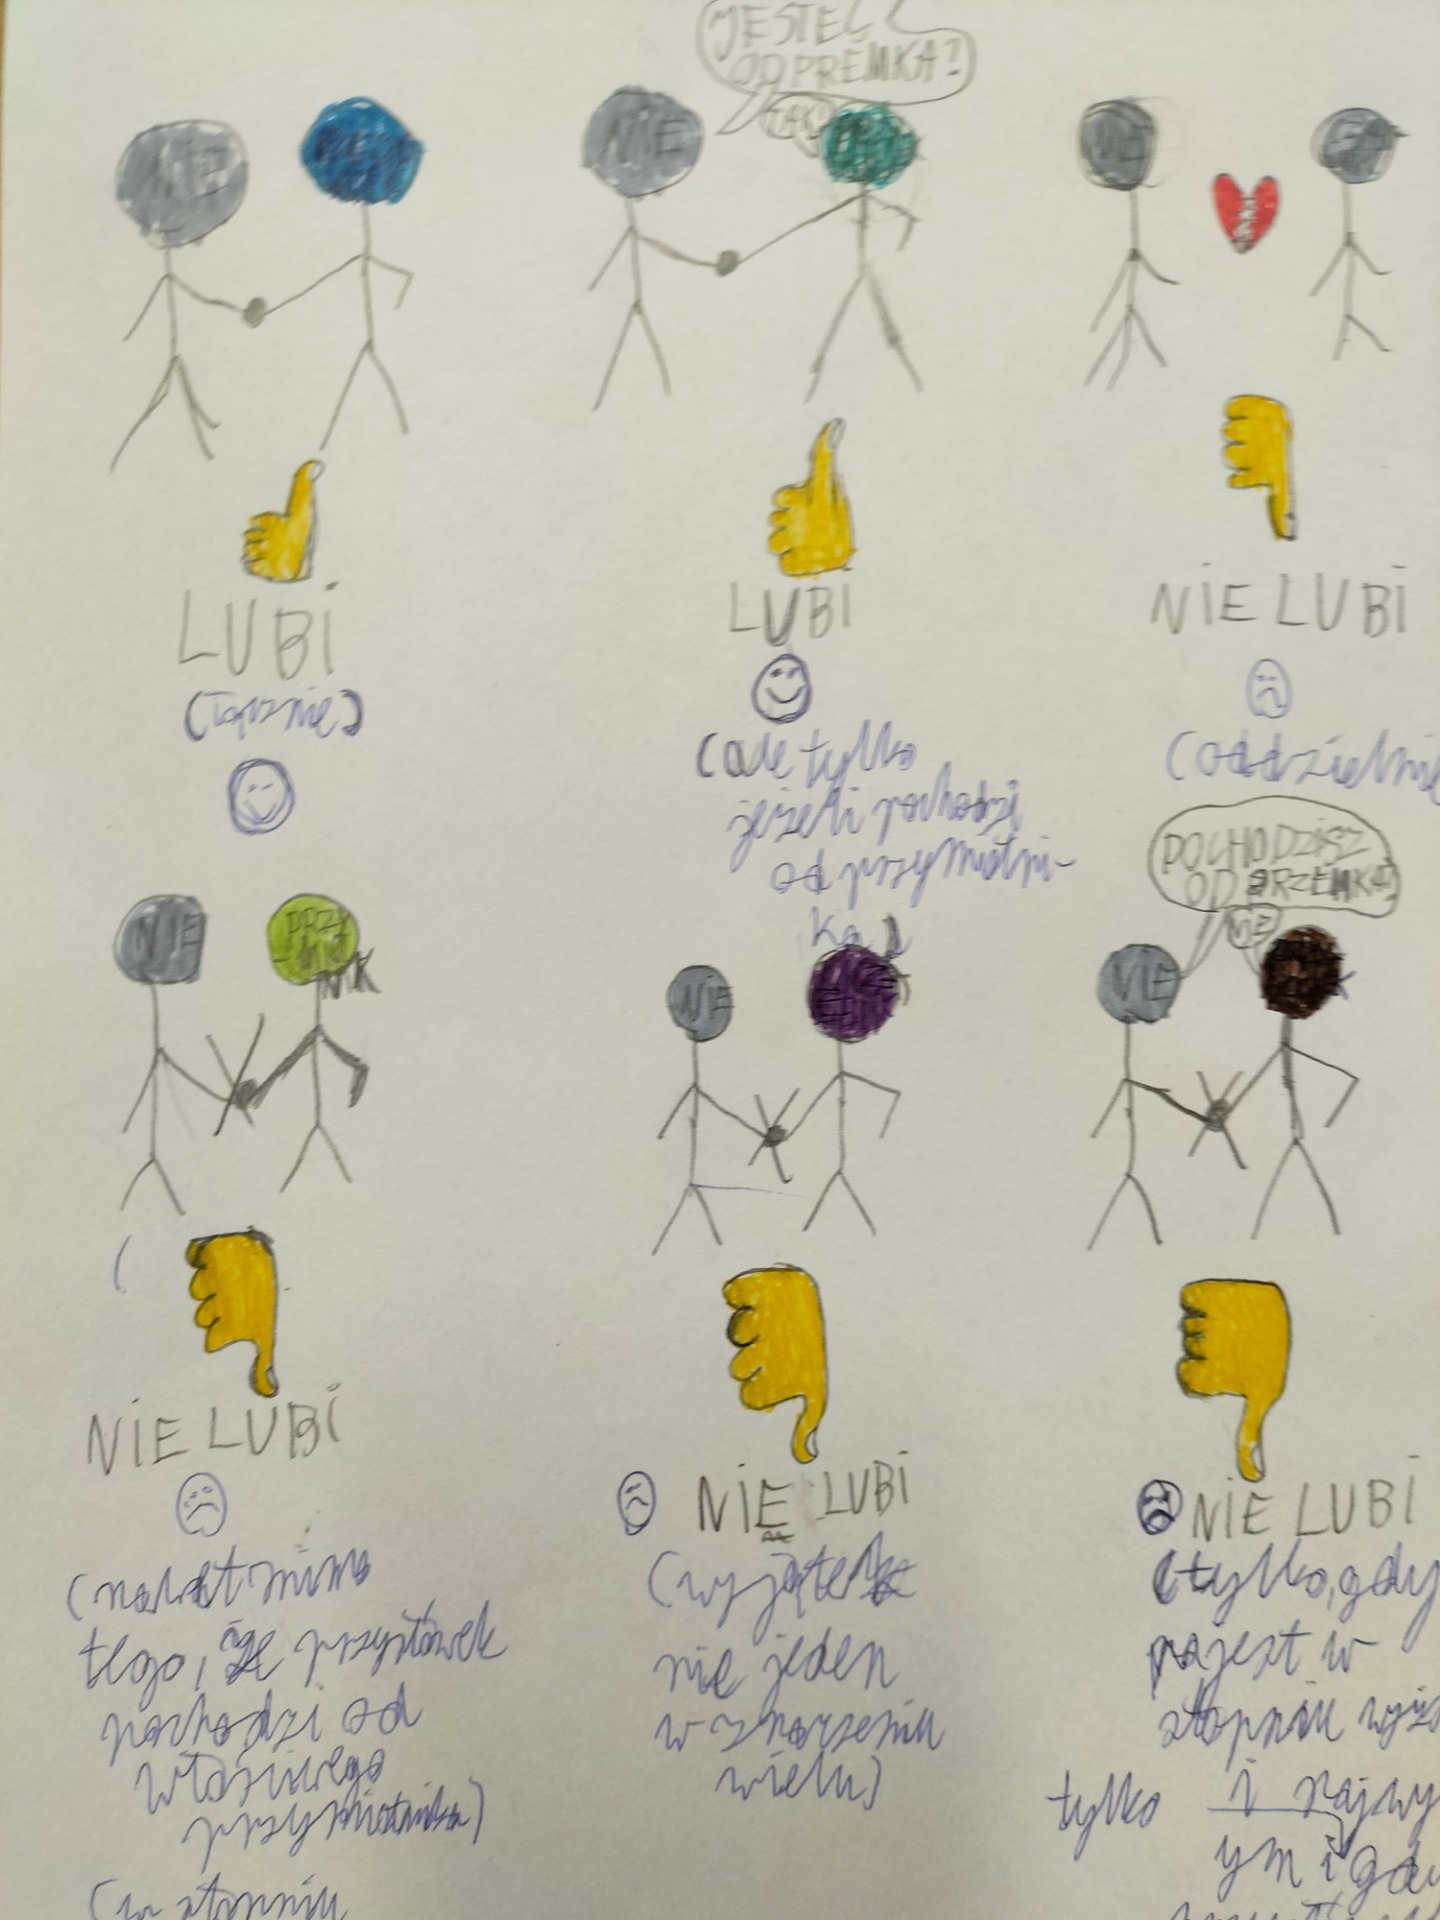 JESTEŚ
OD PREMKA?
TAK
NIE
NIE
LUBI
(łącznie)
LUBI
(ale tylko
jeżeli pochodzi
od przymiotni-
ka)
NIE LUBI
(oddzielnie
NIE
PRZY
MIOT
NIK
NIE LUBI
(nawet mimo
tego, że przysłówek
pochodzi od
właściwego
przymiotnika)
(w stopniu
NIE
NIE LUBI
(wyjątek
nie jeden
w znaczeniu
wielu)
POCHODZISZ
OD PRZEMKA?
NIE
NIE
NIE LUBI
(tylko, gdy
jest w
stopniu wyż
tylko i najwy
ym i gdy